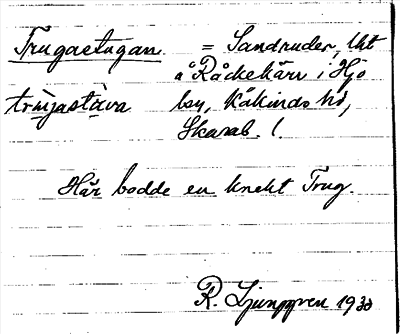 Trugaetugan. = Sandruder, lht
å Råckekärr i Hjo
trùjastùva bsy, Kåkinds hd,
Skarab. l.
Här bodde en knekt Trug.
R. Ljunggren 1930